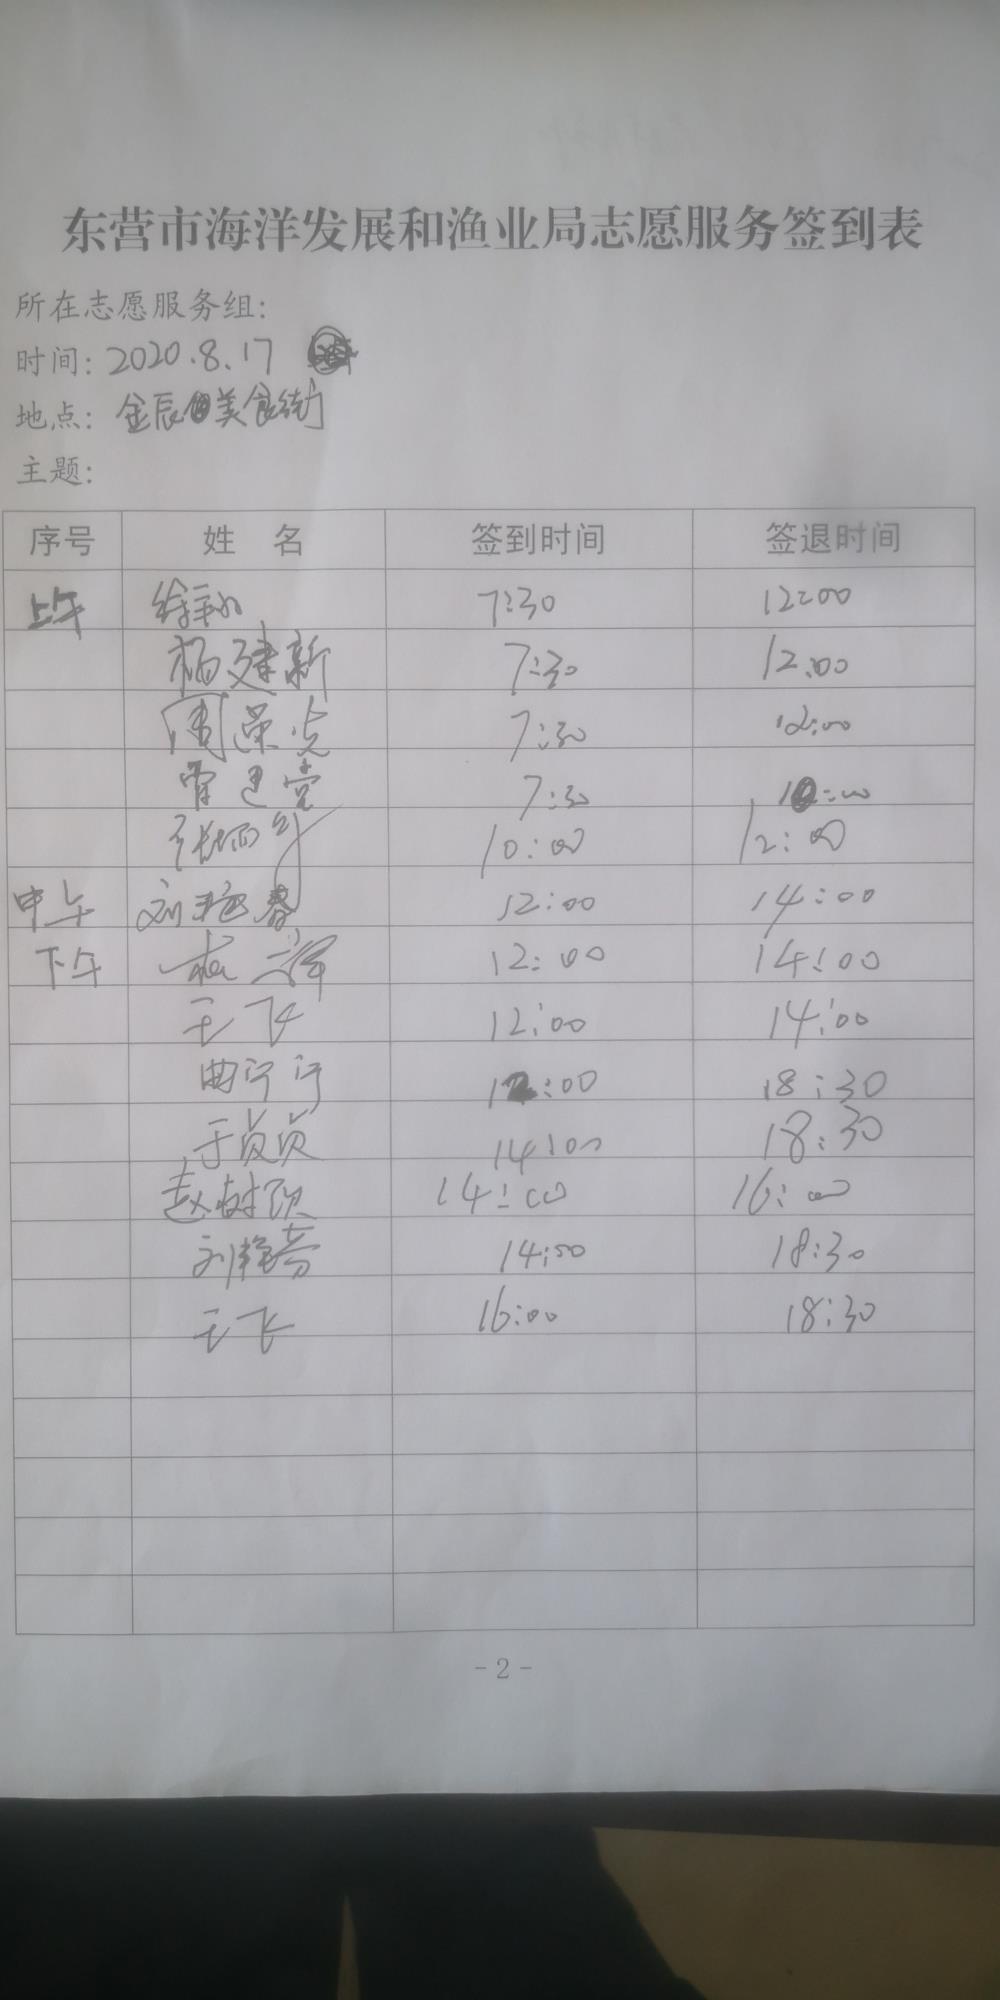 东营市海洋发展和渔业局志愿服务签到表
所在志愿服务组:
时间: 2020.8.17
地点: 金辰美食街
主题:
序号 姓名 签到时间 签退时间
上午 7:30 12:00
杨建新 7:30 12:00
周荣光 7:30 12:00
7:30 12:00
10:00 12:00
中午 刘艳春 12:00 14:00
下午 12:00 14:00
王飞 12:00 14:00
曲宁宁 12:00 18:30
于贞贞 14:00 18:30
赵树欣 14:00 16:00
14:00 18:30
王飞 16:00 18:30
- 2 -